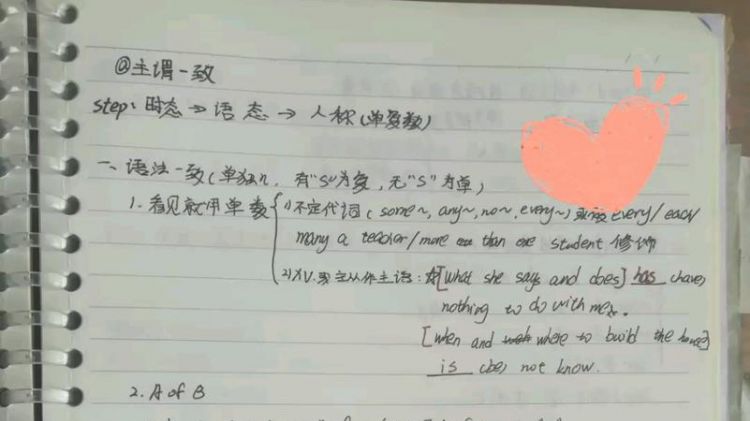 @主谓一致
step: 时态 → 语态 → 人称(单复数)
一、语法一致(单独n. 有"S"为复,无"S"为单)
1. 看见就用单数 1)不定代词(some~, any~, no~, every~) every/each/
many a teacher/more than one student 修饰
2) 从作主语: [what she says and does] has (have)
nothing to do with me.
[when and where to build the house]
is (be) not know.
2. A of B